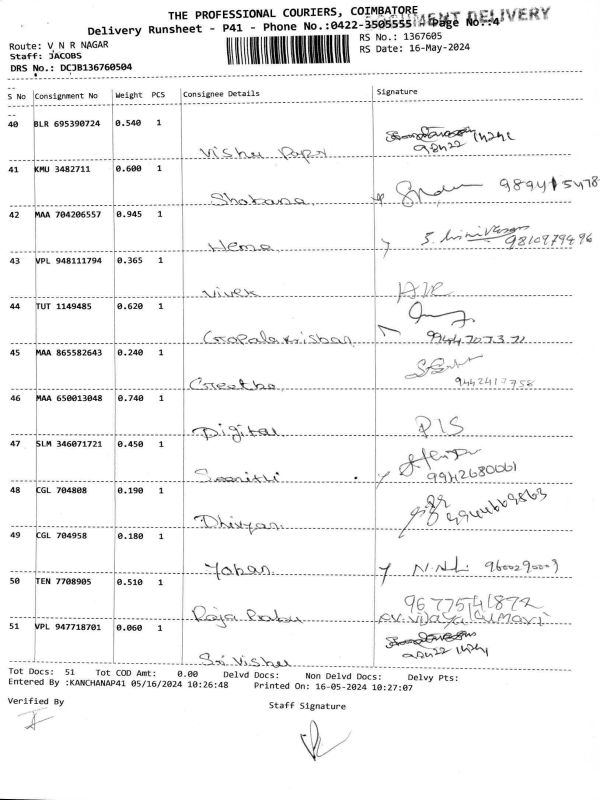 THE PROFESSIONAL COURIERS, COIMBATORE
DOCUMENT DELIVERY
Delivery Runsheet - P41 - Phone No.:0422-3505555 # Page No.:4
Route: V N R NAGAR
RS No.: 1367605
Staff: JACOBS
RS Date: 16-May-2024
DRS No.: DCJB136760504
S No Consignment No Weight PCS Consignee Details Signature
40 BLR 695390724 0.540 1
Vishu Papr
41 KMU 3482711 0.600 1
Shobana
42 MAA 704206557 0.945 1
Hema
43 VPL 948111794 0.365 1
Vivek
44 TUT 1149485 0.620 1
Gopalakrishan
45 MAA 865582643 0.240 1
Geetha
46 MAA 650013048 0.740 1
Digital
47 SLM 346071721 0.450 1
9942680061
48 CGL 704808 0.190 1
Dhivyan
49 CGL 704958 0.180 1
Yoban
N.N 9600290003
50 TEN 7708905 0.510 1
9677541872
Raja Prabu
51 VPL 947718701 0.060 1
Sri Vishu
Tot Docs: 51 Tot COD Amt: 0.00 Delvd Docs: Non Delvd Docs: Delvy Pts:
Entered By :KANCHANAP41 05/16/2024 10:26:48 Printed On: 16-05-2024 10:27:07
Verified By
Staff Signature